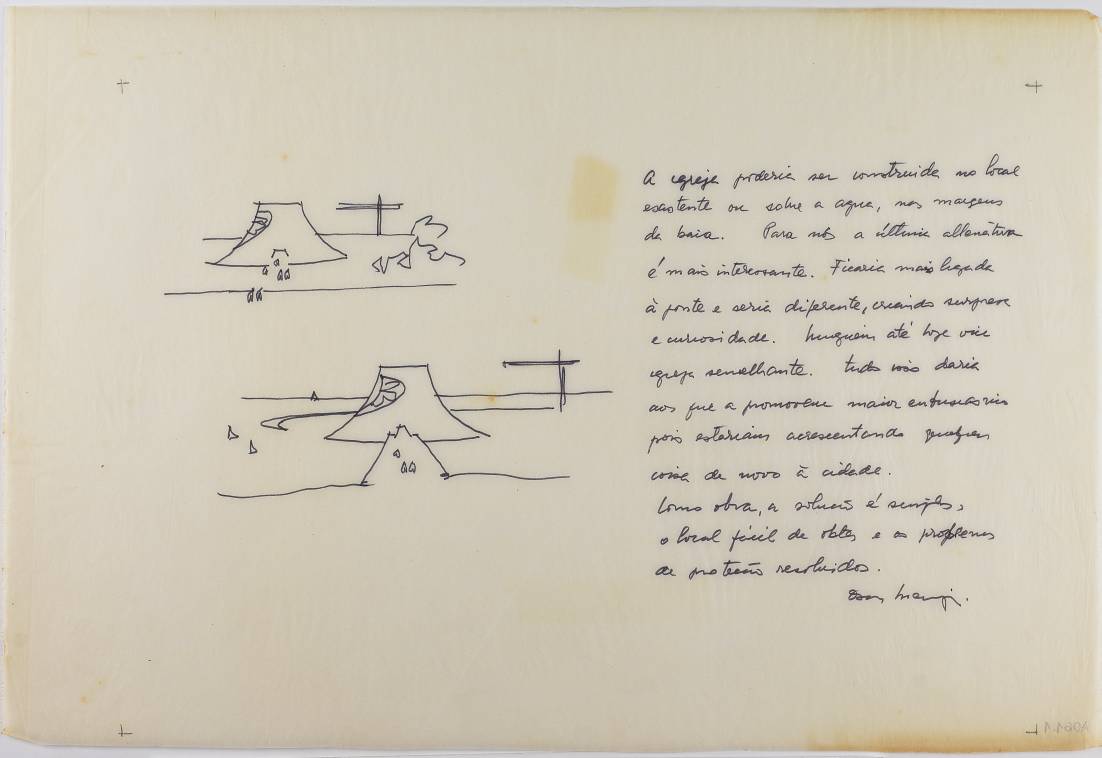 A igreja poderia ser construida no local
existente ou sobre a agua, nas margens
da baia. Para nós a última alternativa
é mais interessante. Ficaria mais ligada
à ponte e seria diferente, criando surpresa
e curiosidade. Ninguém até hoje viu
igreja semelhante. Tudo isso daria
aos que a promovem maior entusiasmo
pois estariam acrescentando qualquer
coisa de novo à cidade.
Como obra, a solução é simples,
o local fácil de obter e os problemas
de proteção resolvidos.